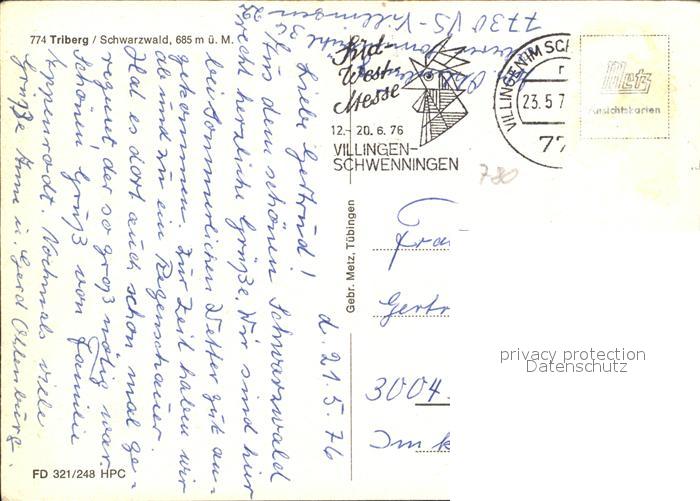 774 Triberg / Schwarzwald, 685 m ü. M.
7730 VS-Villingen
Süd-
West-
Messe
12.- 20. 6. 76
VILLINGEN-
SCHWENNINGEN
VILLINGEN IM SCH
23.5.7
77
Metz
Ansichtskarten
780
d. 21.5.76
Liebe Gertrud!
Aus dem schönen Schwarzwald
recht herzliche Grüße. Wir sind hier
bei sommerlichen Wetter gut an-
gekommen. Zur Zeit haben wir
ab und zu ein Regenschauer.
Hat es dort auch schon mal ge-
regnet der so groß nötig war.
Schönen Gruß von Familie
Appenrodt. Nochmals viele
Grüße Anne u. Gerd Oldenburg.
Gebr. Metz, Tübingen
Gertr
3004
Im k
privacy protection
Datenschutz
FD 321/248 HPC